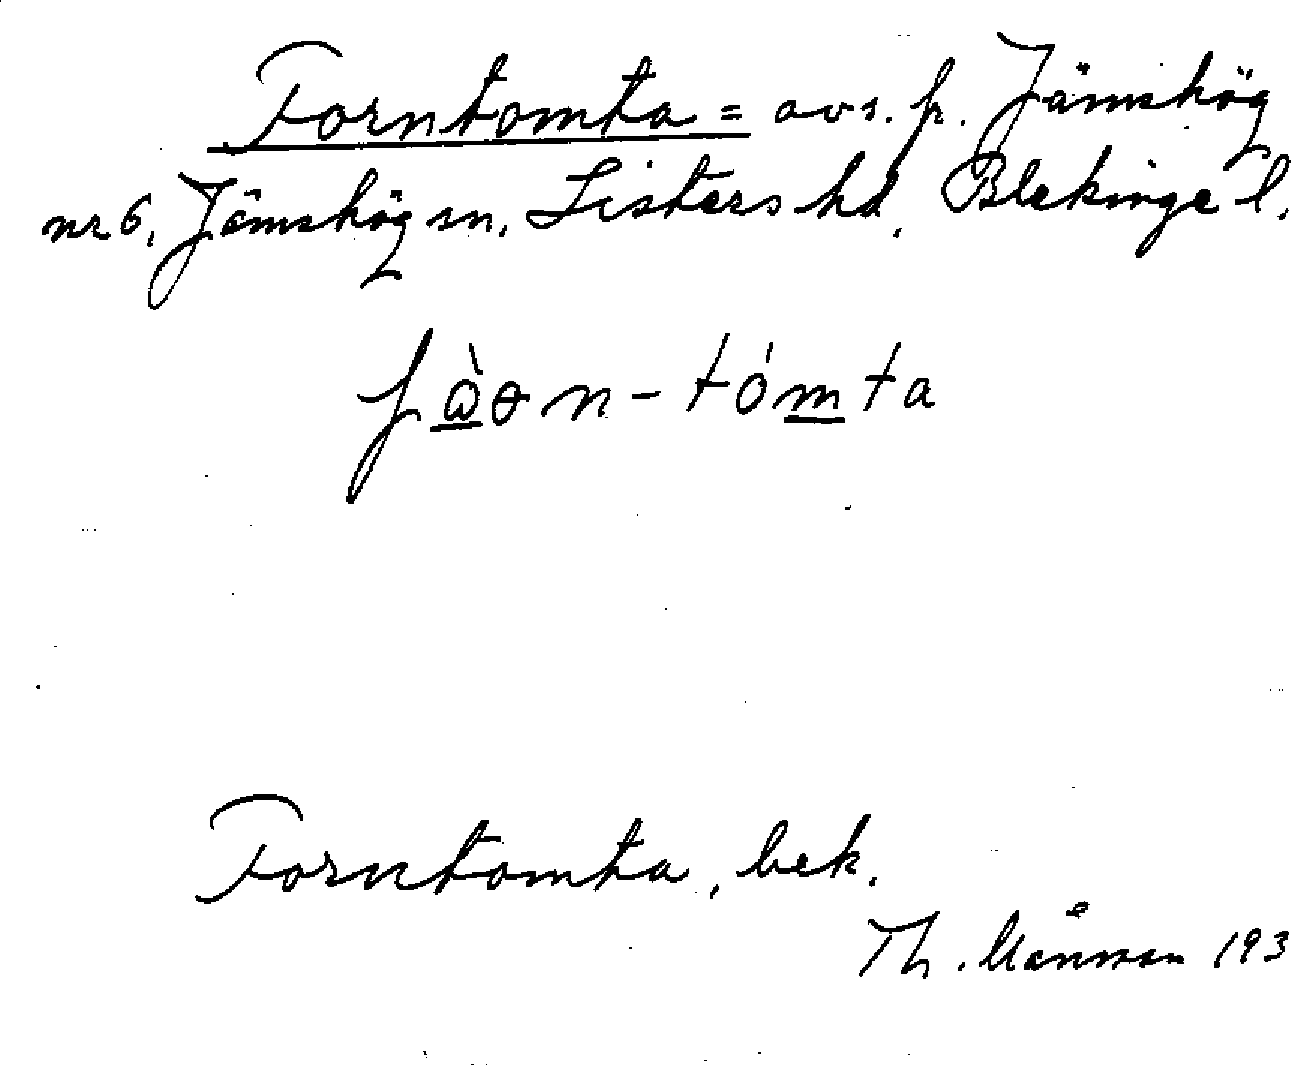 Forntomta = avs. fr. Jämshög
nr 6, Jämshög sn, Listers hd, Blekinge l.
fò̲ən-tóm̲ta
Forntomta, bek.
Th. Månsson 193